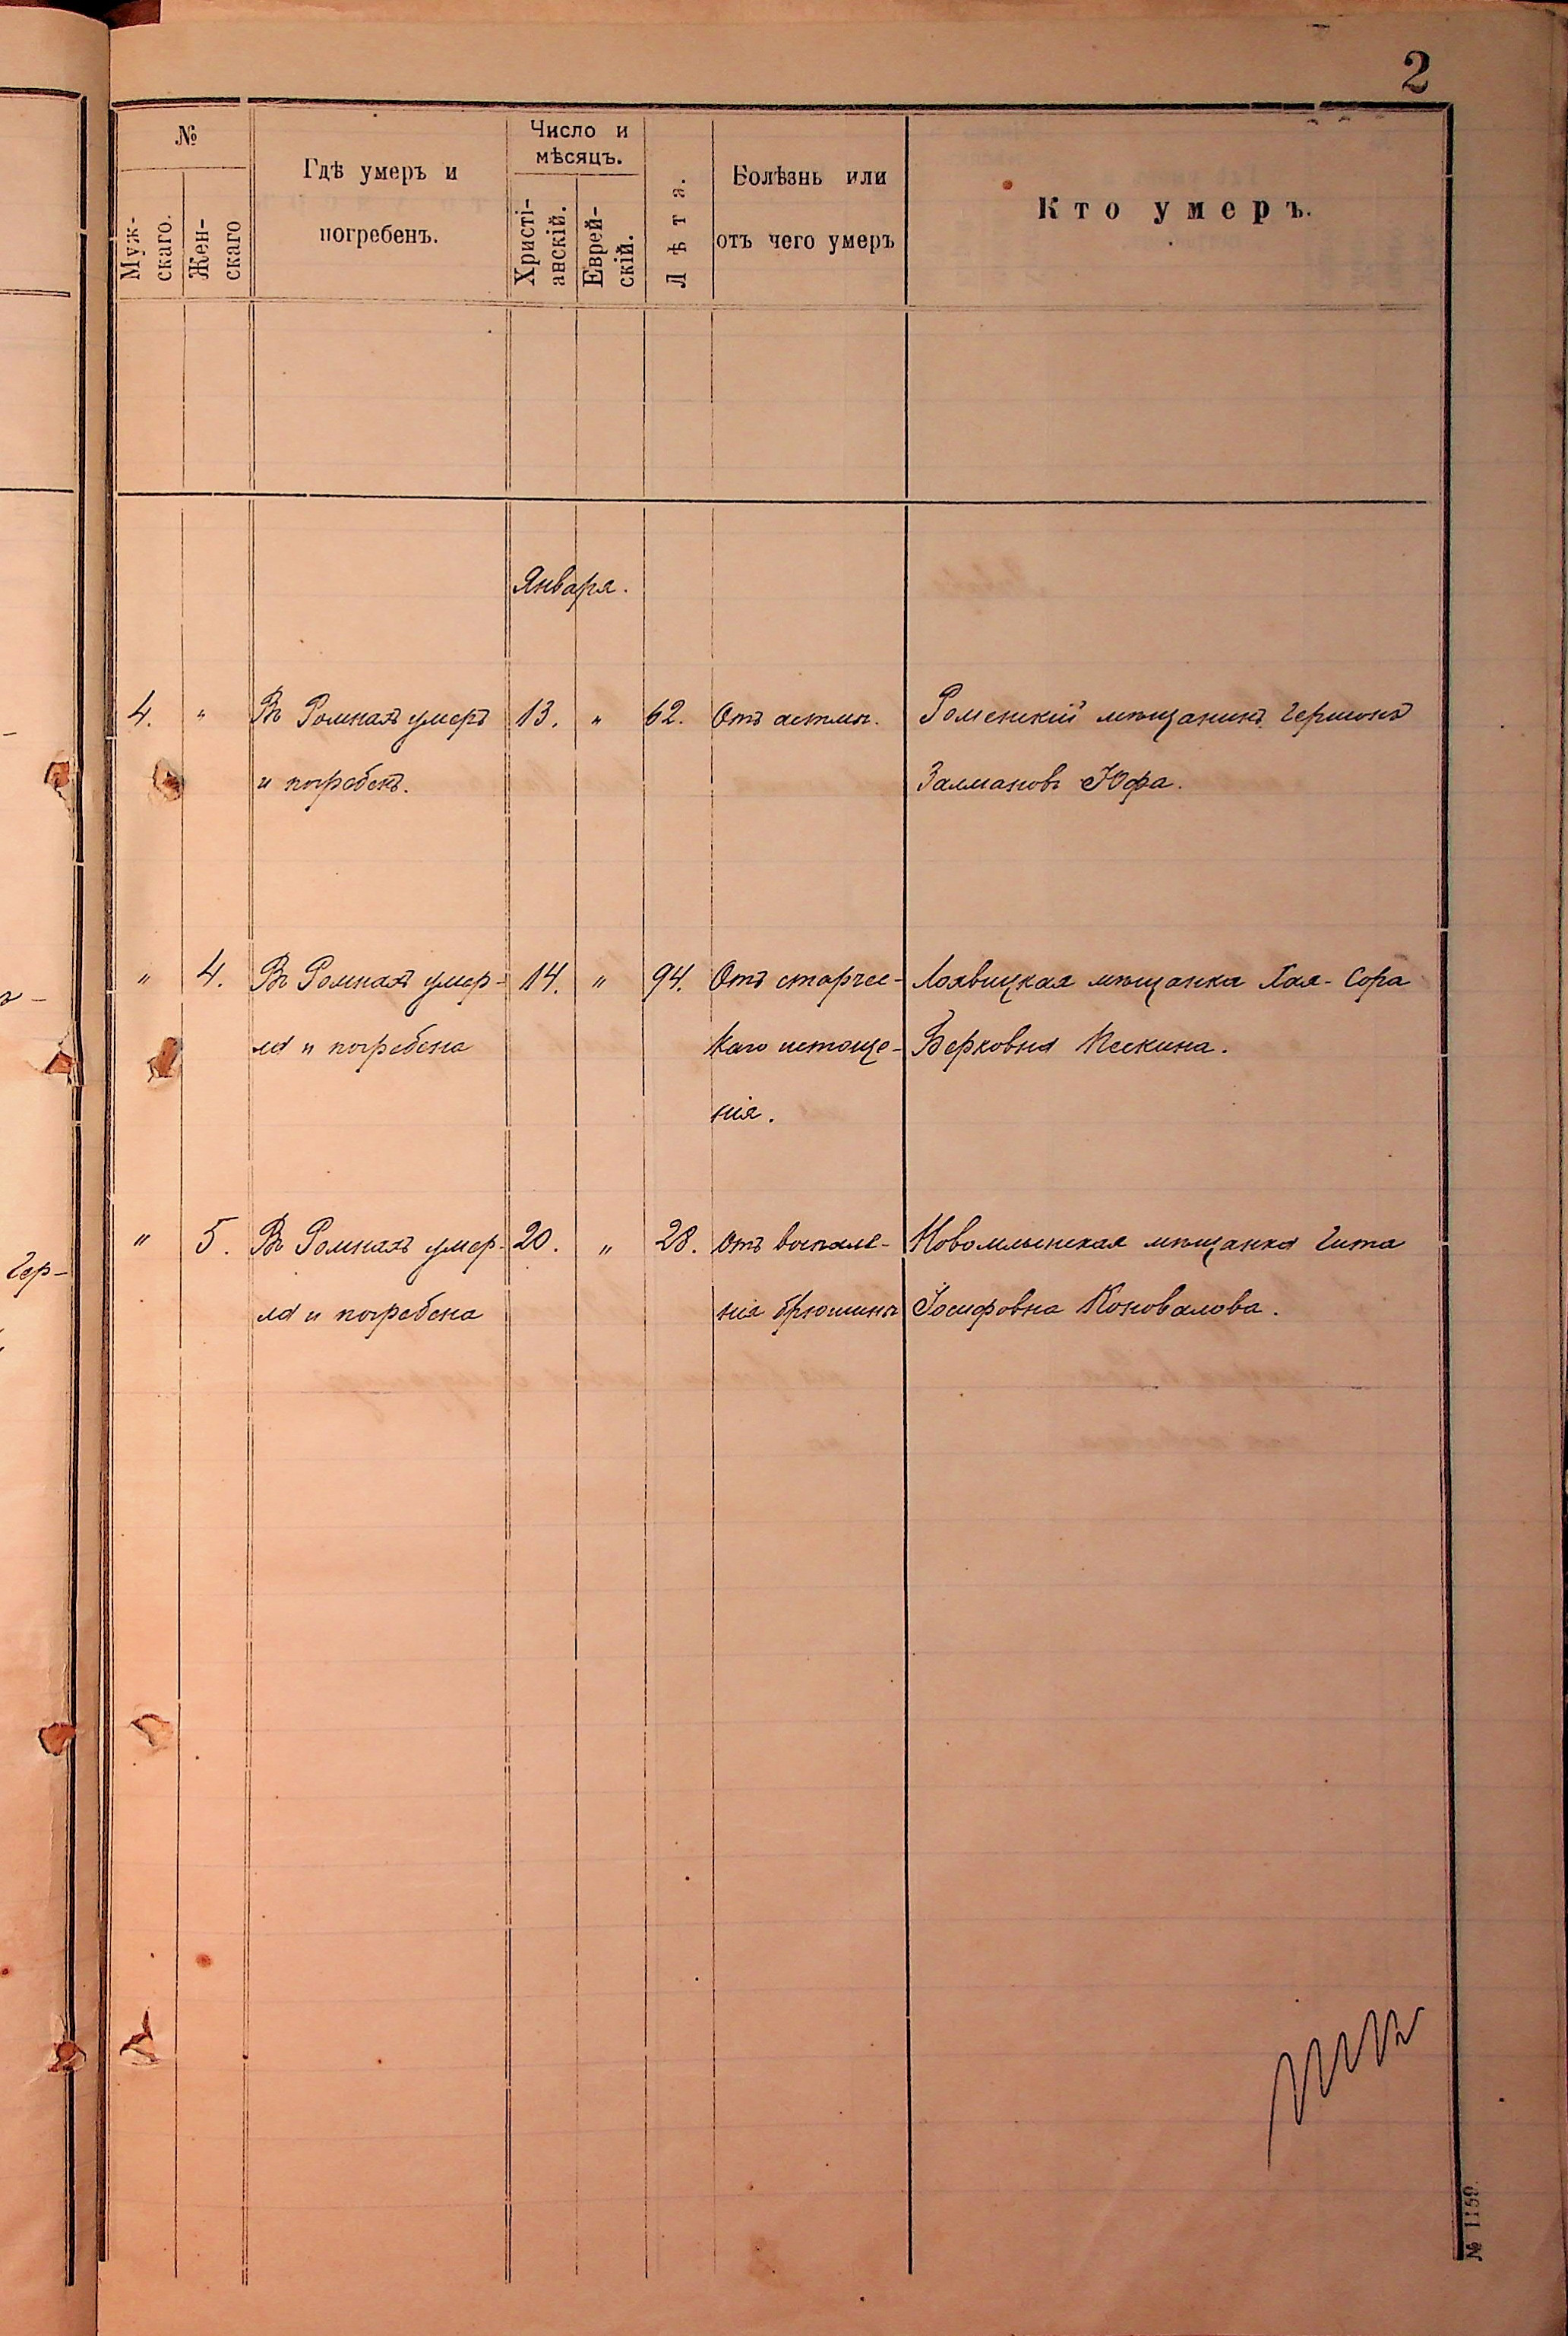 2
№
Муж-
скаго.
Жен-
скаго
Гдѣ умеръ и
погребенъ.
Число и
мѣсяцъ.
Христі-
анскій.
Еврей-
скій.
Лѣта.
Болѣзнь или
отъ чего умеръ
Кто умеръ.
Января.
4. " Въ Ромнахъ умеръ 13. " 62. Отъ астмы. Роменскій мѣщанинъ Гершонъ
и погребенъ. Залмановъ Юфа.
" 4. Въ Ромнахъ умер- 14. " 94. Отъ старчес- Лохвицкая мѣщанка Хая-Сора
ла и погребена каго истоще- Берковна
нія.
" 5. Въ Ромнахъ умер- 20. " 28. Отъ воспале- Новомлынская мѣщанка Гита
ла и погребена нія брюшины Іосифовна Коновалова.
Гер-
№ 1159.